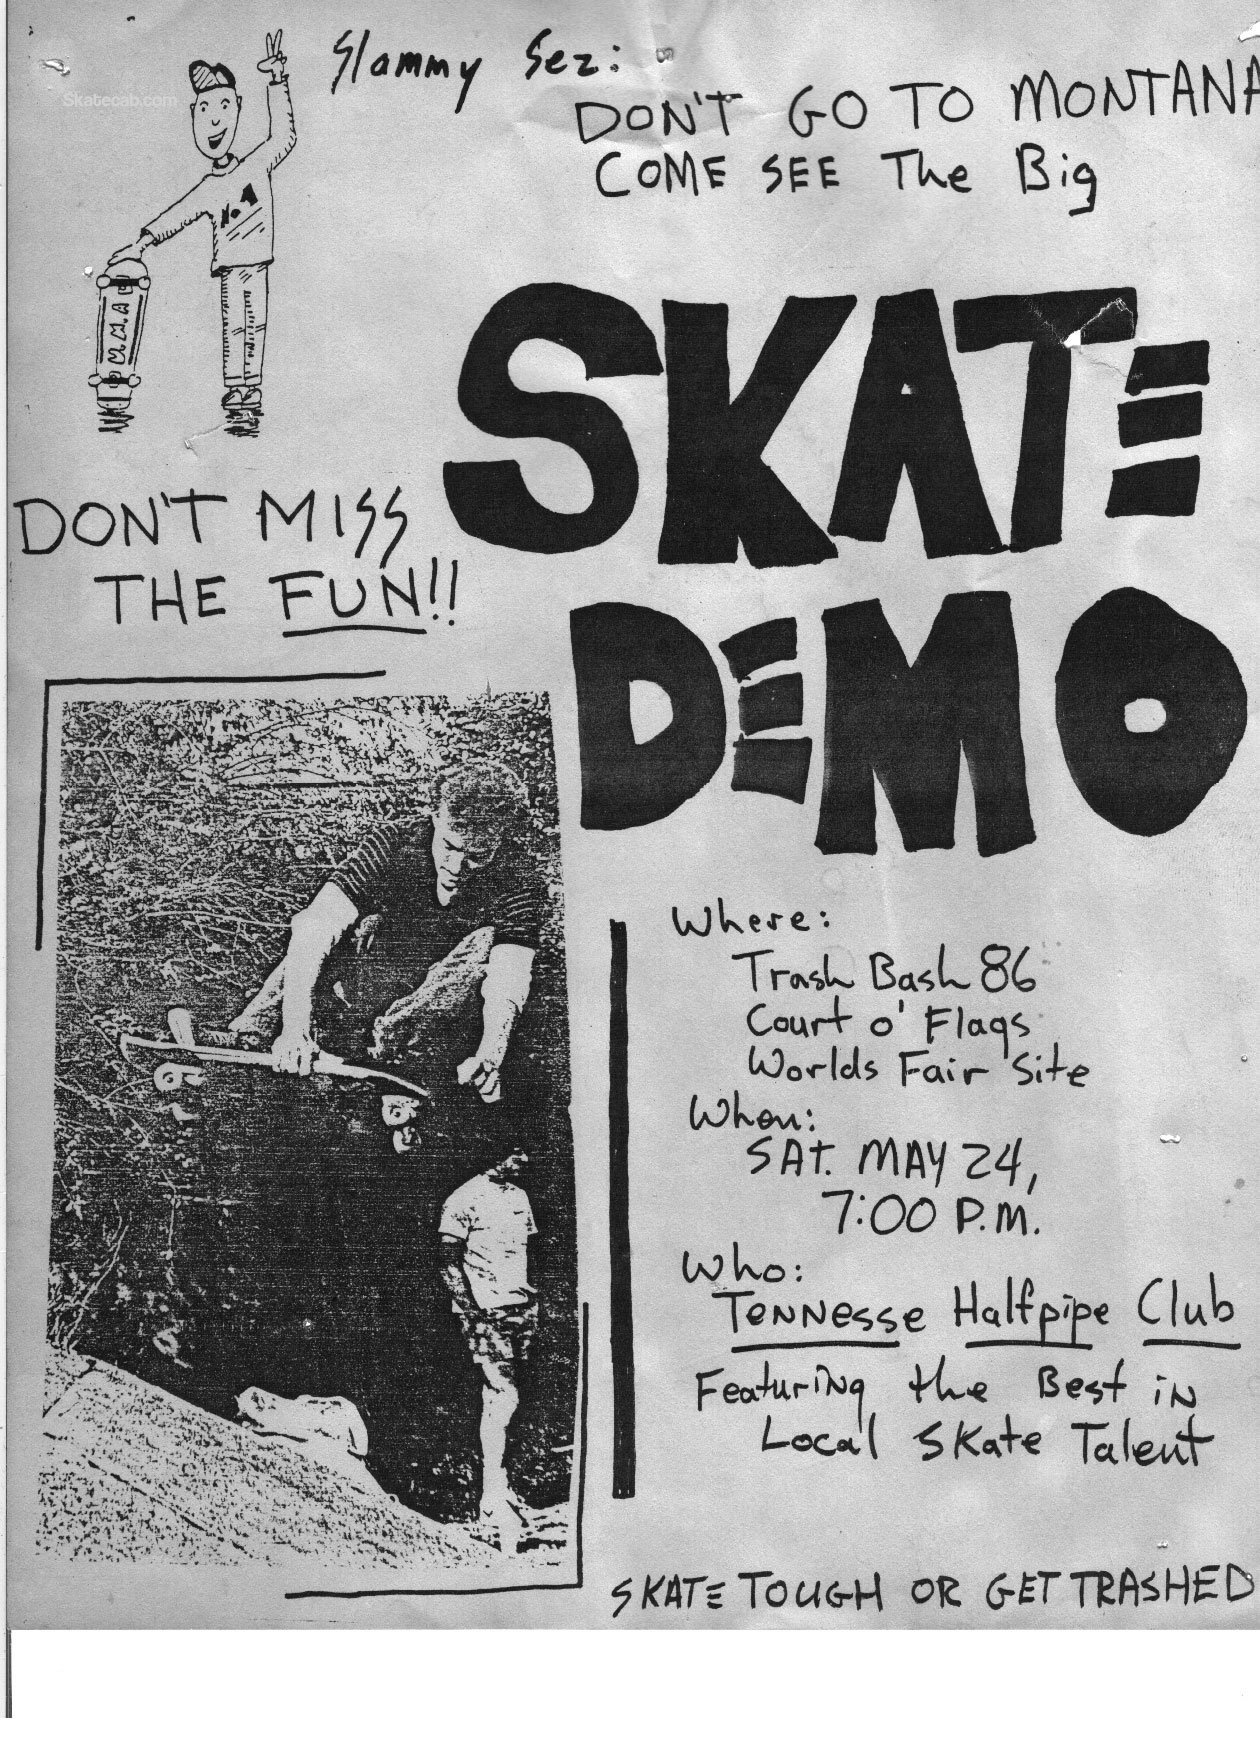 Skatecab.com
Slammy Sez:
DON'T GO TO MONTANA
COME SEE The Big
No 1
SKATE
DEMO
DON'T MISS
THE FUN!!
Where:
Trash Bash 86
Court o' Flags
Worlds Fair Site
When:
SAT. MAY 24,
7:00 P.M.
Who:
TENNESSE Halfpipe Club
Featuring the Best in
Local Skate Talent
SKATE TOUGH OR GET TRASHED